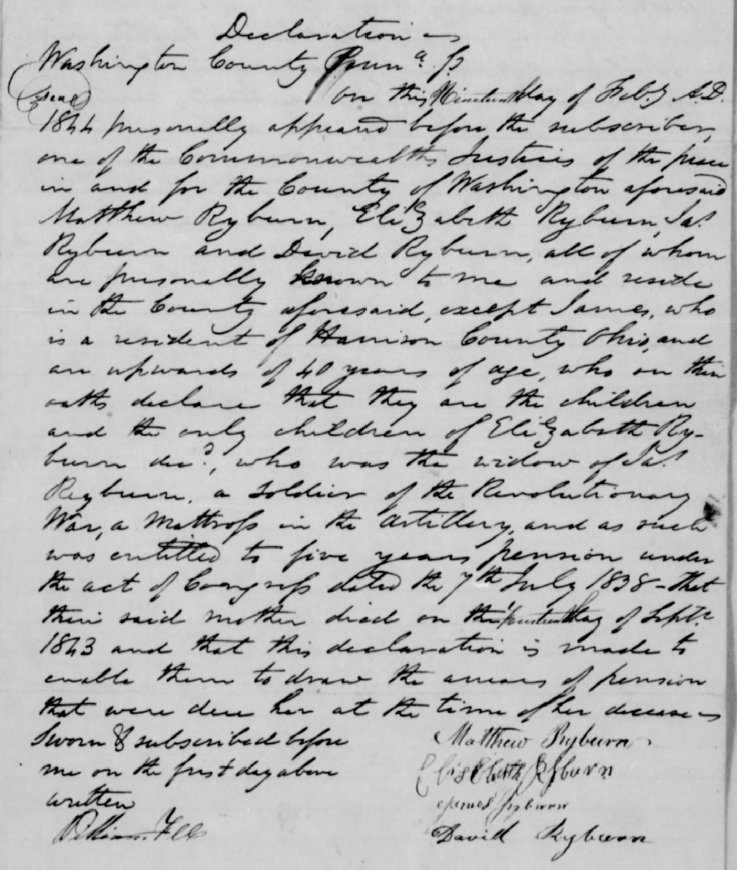 Declaration
Washington County Penna. ss
seal on this Nineteenth day of Feby A.D.
1844 personally appeared before the subscriber,
one of the Commonwealths Justices of the peace
in and for the County of Washington aforesaid
Matthew Ryburn, Elizabeth Ryburn, Jas.
Ryburn and David Ryburn, all of whom
are personally known to me and reside
in the County aforesaid, except James, who
is a resident of Harrison County Ohio, and
are upwards of 40 years of age, who on their
oaths declare that they are the children
and the only children of Elizabeth Ry-
burn decd., who was the widow of Jas.
Reyburn, a soldier of the Revolutionary
War, a Mattross in the Artillery, and as such
was entitled to five years pension under
the act of Congress dated the 7th July 1838 - that
their said mother died on the day of Septr.
1843 and that this declaration is made to
enable them to draw the arrears of pension
that were due her at the time of her decease
Sworn & subscribed before
me on the first day above
written
William
Matthew Ryburn
Elisabeth Ryburn
James Ryburn
David Ryburn